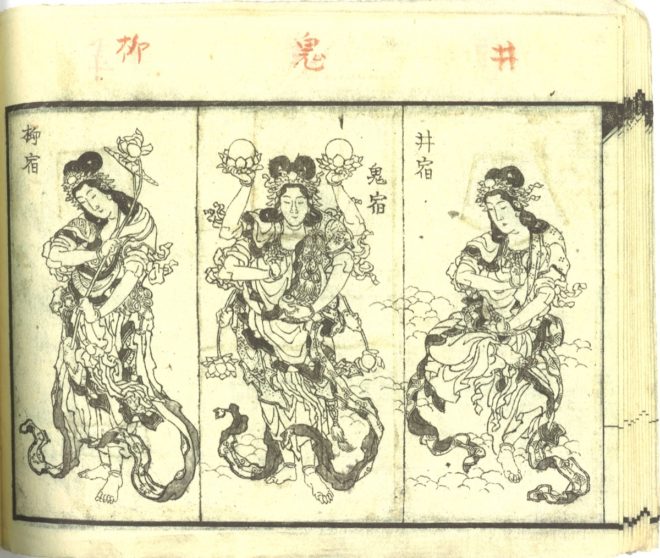 井
鬼
柳
井宿
鬼宿
柳宿